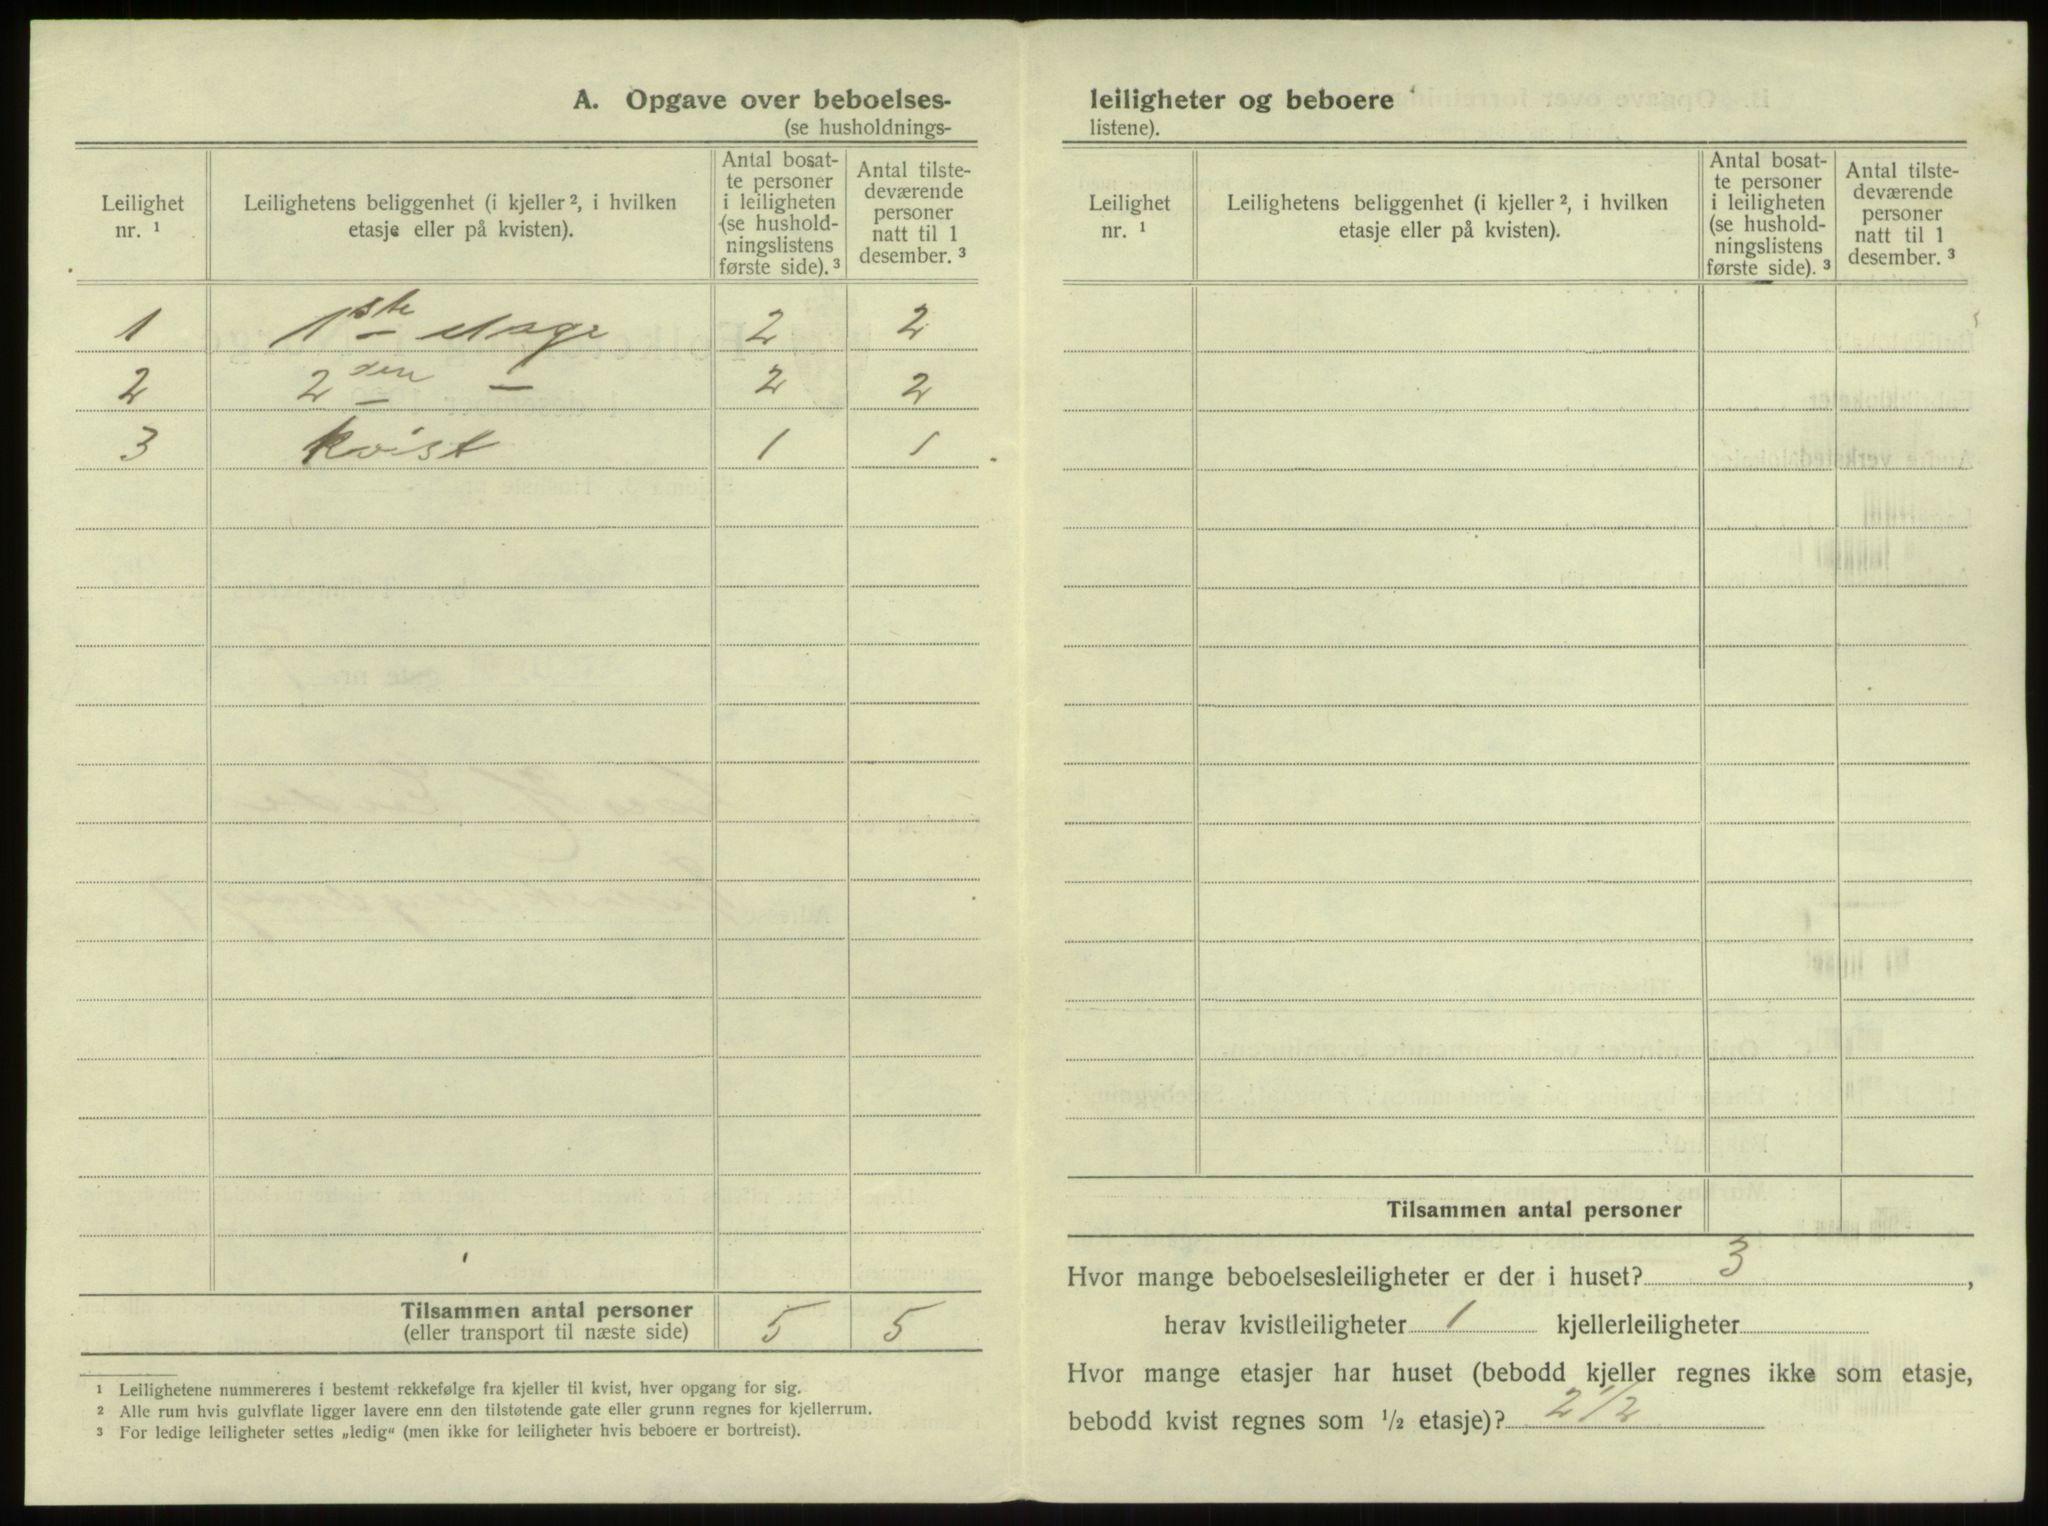 A. Opgave over beboelses-
(se husholdnings-
Leilighet
nr. ¹
Leilighetens beliggenhet (i kjeller ², i hvilken
etasje eller på kvisten).
Antal bosat-
te personer
i leiligheten
(se hushold-
ningslistens
første side). ³
Antal tilste-
deværende
personer
natt til 1
desember. ³
1 1ste etage 2 2
2 2den — 2 2
3 kvist 1 1
Tilsammen antal personer 5 5
(eller transport til næste side)
¹ Leilighetene nummereres i bestemt rekkefølge fra kjeller til kvist, hver opgang for sig.
² Alle rum hvis gulvflate ligger lavere enn den tilstøtende gate eller grunn regnes for kjellerrum.
³ For ledige leiligheter settes „ledig“ (men ikke for leiligheter hvis beboere er bortreist).
leiligheter og beboere
listene).
Leilighet
nr. ¹
Leilighetens beliggenhet (i kjeller ², i hvilken
etasje eller på kvisten).
Antal bosat-
te personer
i leiligheten
(se hushold-
ningslistens
første side). ³
Antal tilste-
deværende
personer
natt til 1
desember. ³
Tilsammen antal personer
Hvor mange beboelsesleiligheter er der i huset? 3,
herav kvistleiligheter 1 kjellerleiligheter
Hvor mange etasjer har huset (bebodd kjeller regnes ikke som etasje,
bebodd kvist regnes som ½ etasje)? 2 1/2